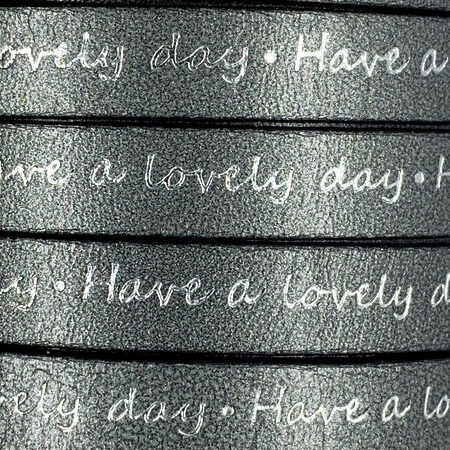 lovely day • Have a
Have a lovely day • H
day • Have a lovely d
lovely day • Have a lo